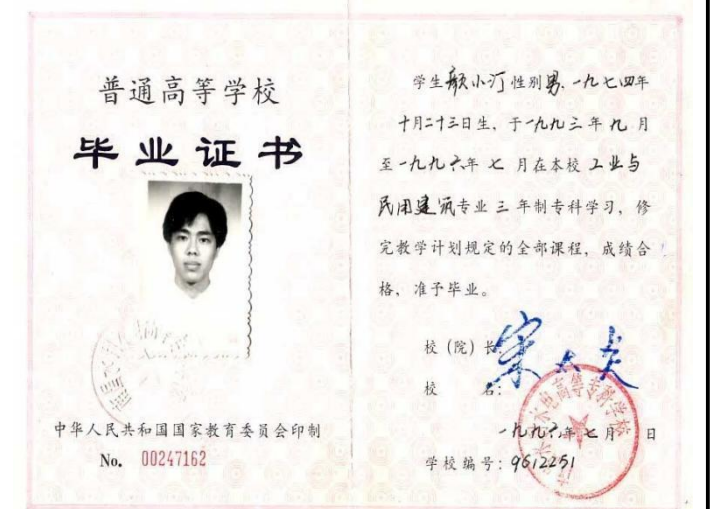 普通高等学校
毕业证书
中华人民共和国国家教育委员会印制
No. 00247162
学生颜小汀性别男,一九七四年
十月二十三日生,于一九九三年九月
至一九九六年七月在本校工业与
民用建筑专业三年制专科学习,修
完教学计划规定的全部课程,成绩合
格,准予毕业。
校(院)长:
校名:
水电高等专科学校
一九九六年七月 日
学校编号:9612251